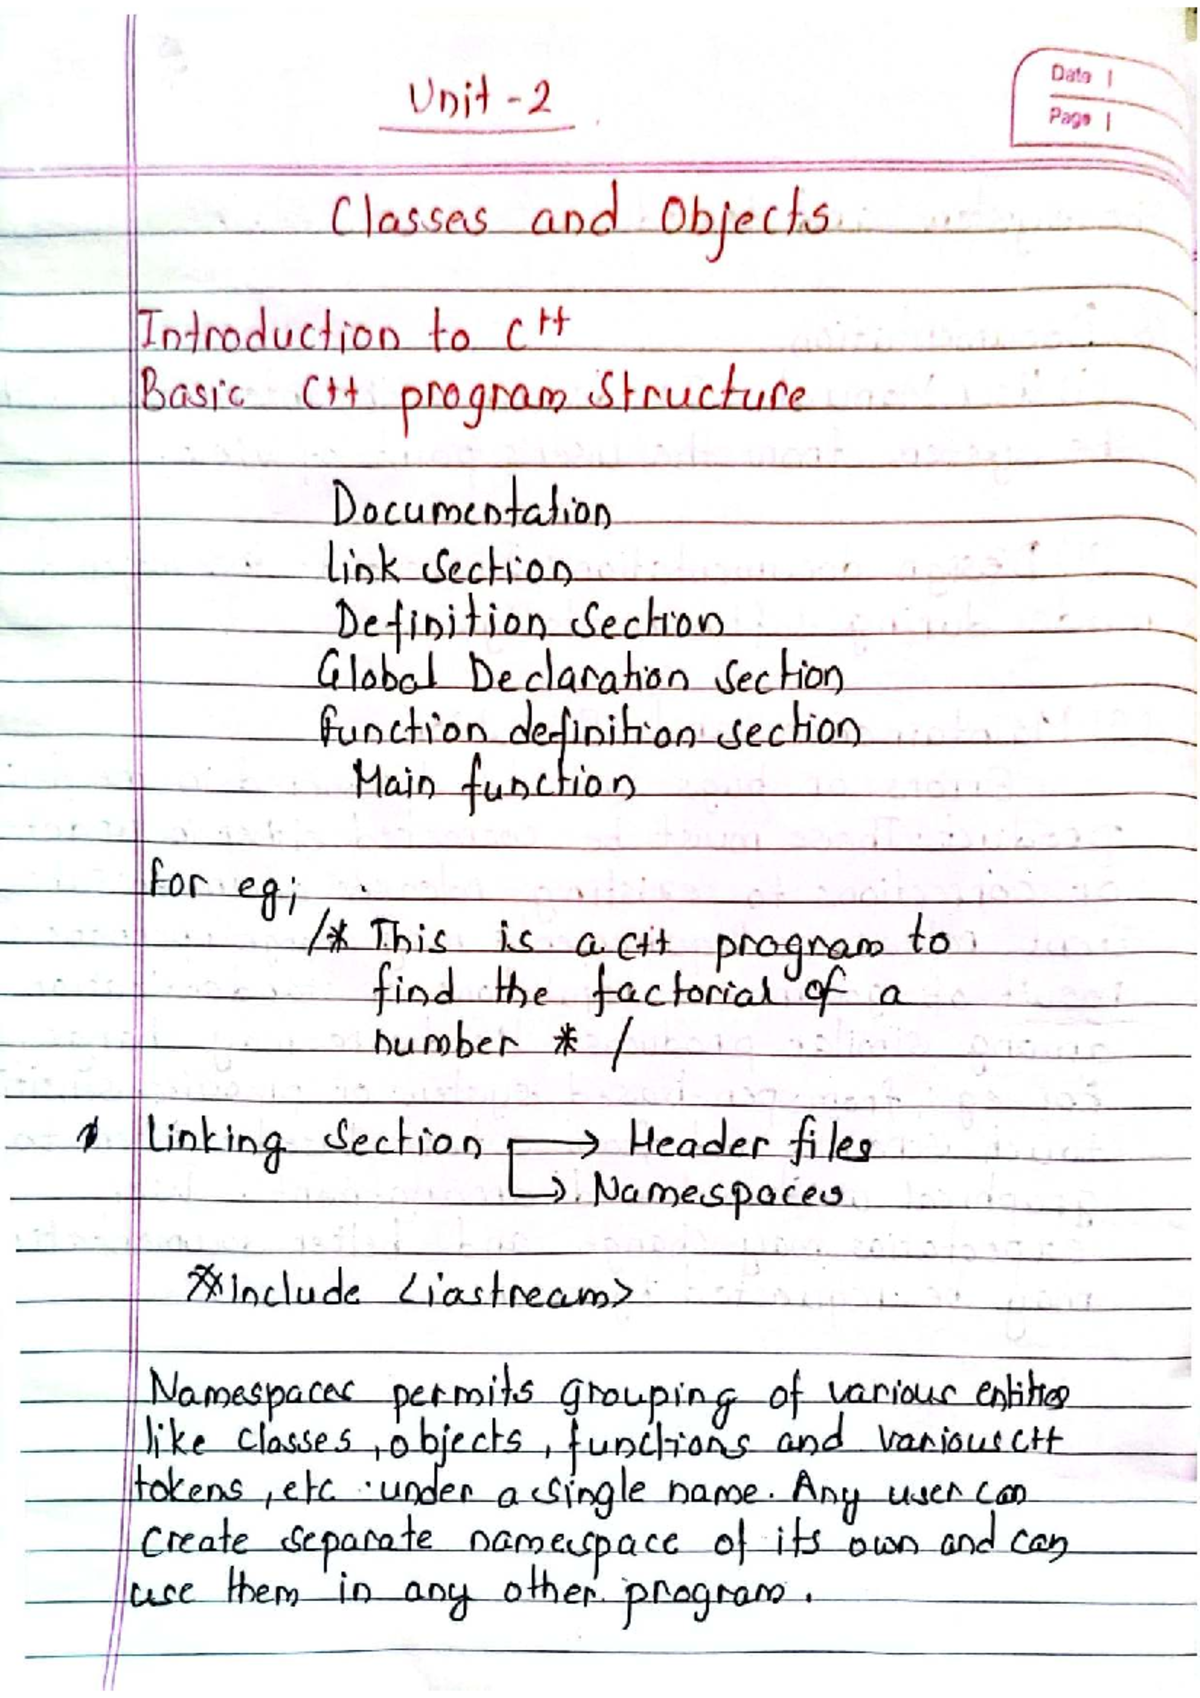 Unit - 2
Date |
Page |
Classes and Objects
Introduction to C++
Basic C++ program Structure
Documentation
Link Section
Definition Section
Global Declaration Section
function definition section
Main function
for eg;
/* This is a C++ program to
find the factorial of a
number * /
Linking Section → Header files
→ Namespaces
#include <iostream>
Namespaces permits grouping of various entities
like classes, objects, functions and various C++
tokens, etc. under a single name. Any user can
create separate namespace of its own and can
use them in any other program.